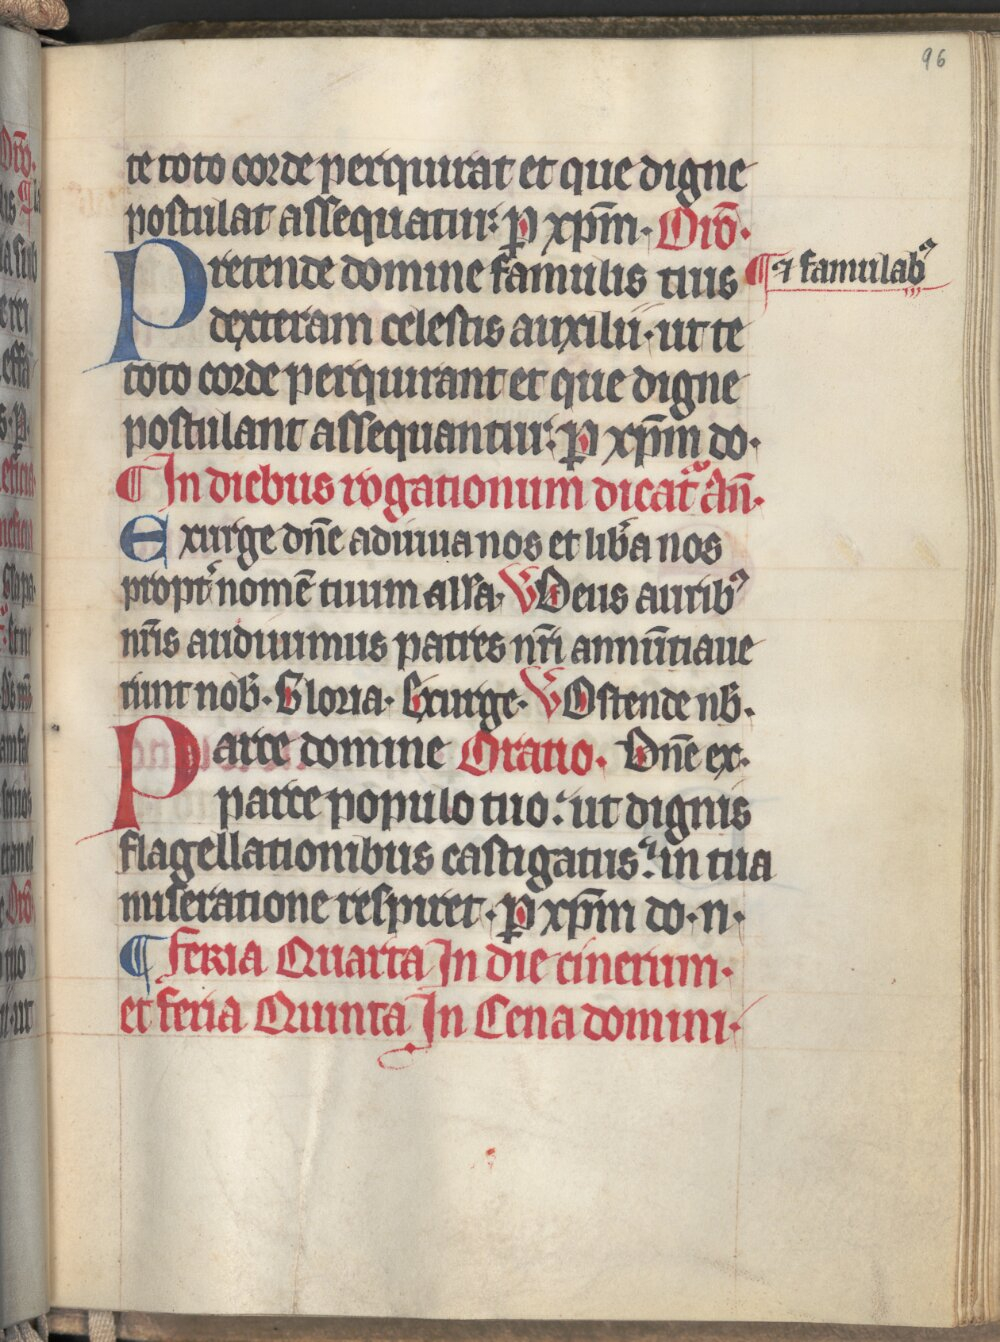 96
te toto corde perquirat et que digne
postulat assequatur: p xp̄m. Orō.
Pretende domine famulis tuis ¶ ⁊ famulabꝰ
dexteram celestis auxilii. ut te
toto corde perquirant et que digne
postulant assequantur: p xp̄m do.
¶ In diebus rogationum dicat᷑ An̄.
Exurge dn̄e adiuua nos et lib̄a nos
propt̄ nomē tuum all̄a. V Deus auribꝰ
nr̄is audiuimus patres nr̄i annūtiaue
runt nob̄. Gloria. Exurge. V Ostende nb̄.
Parce domine Oratio. Dn̄e ex.
parce populo tuo: ut dignis
flagellationibus castigatus: in tua
miseratione respiret. p xp̄m do. n.
¶ feria Quarta In die cinerum.
et feria Quinta In Cena domini.